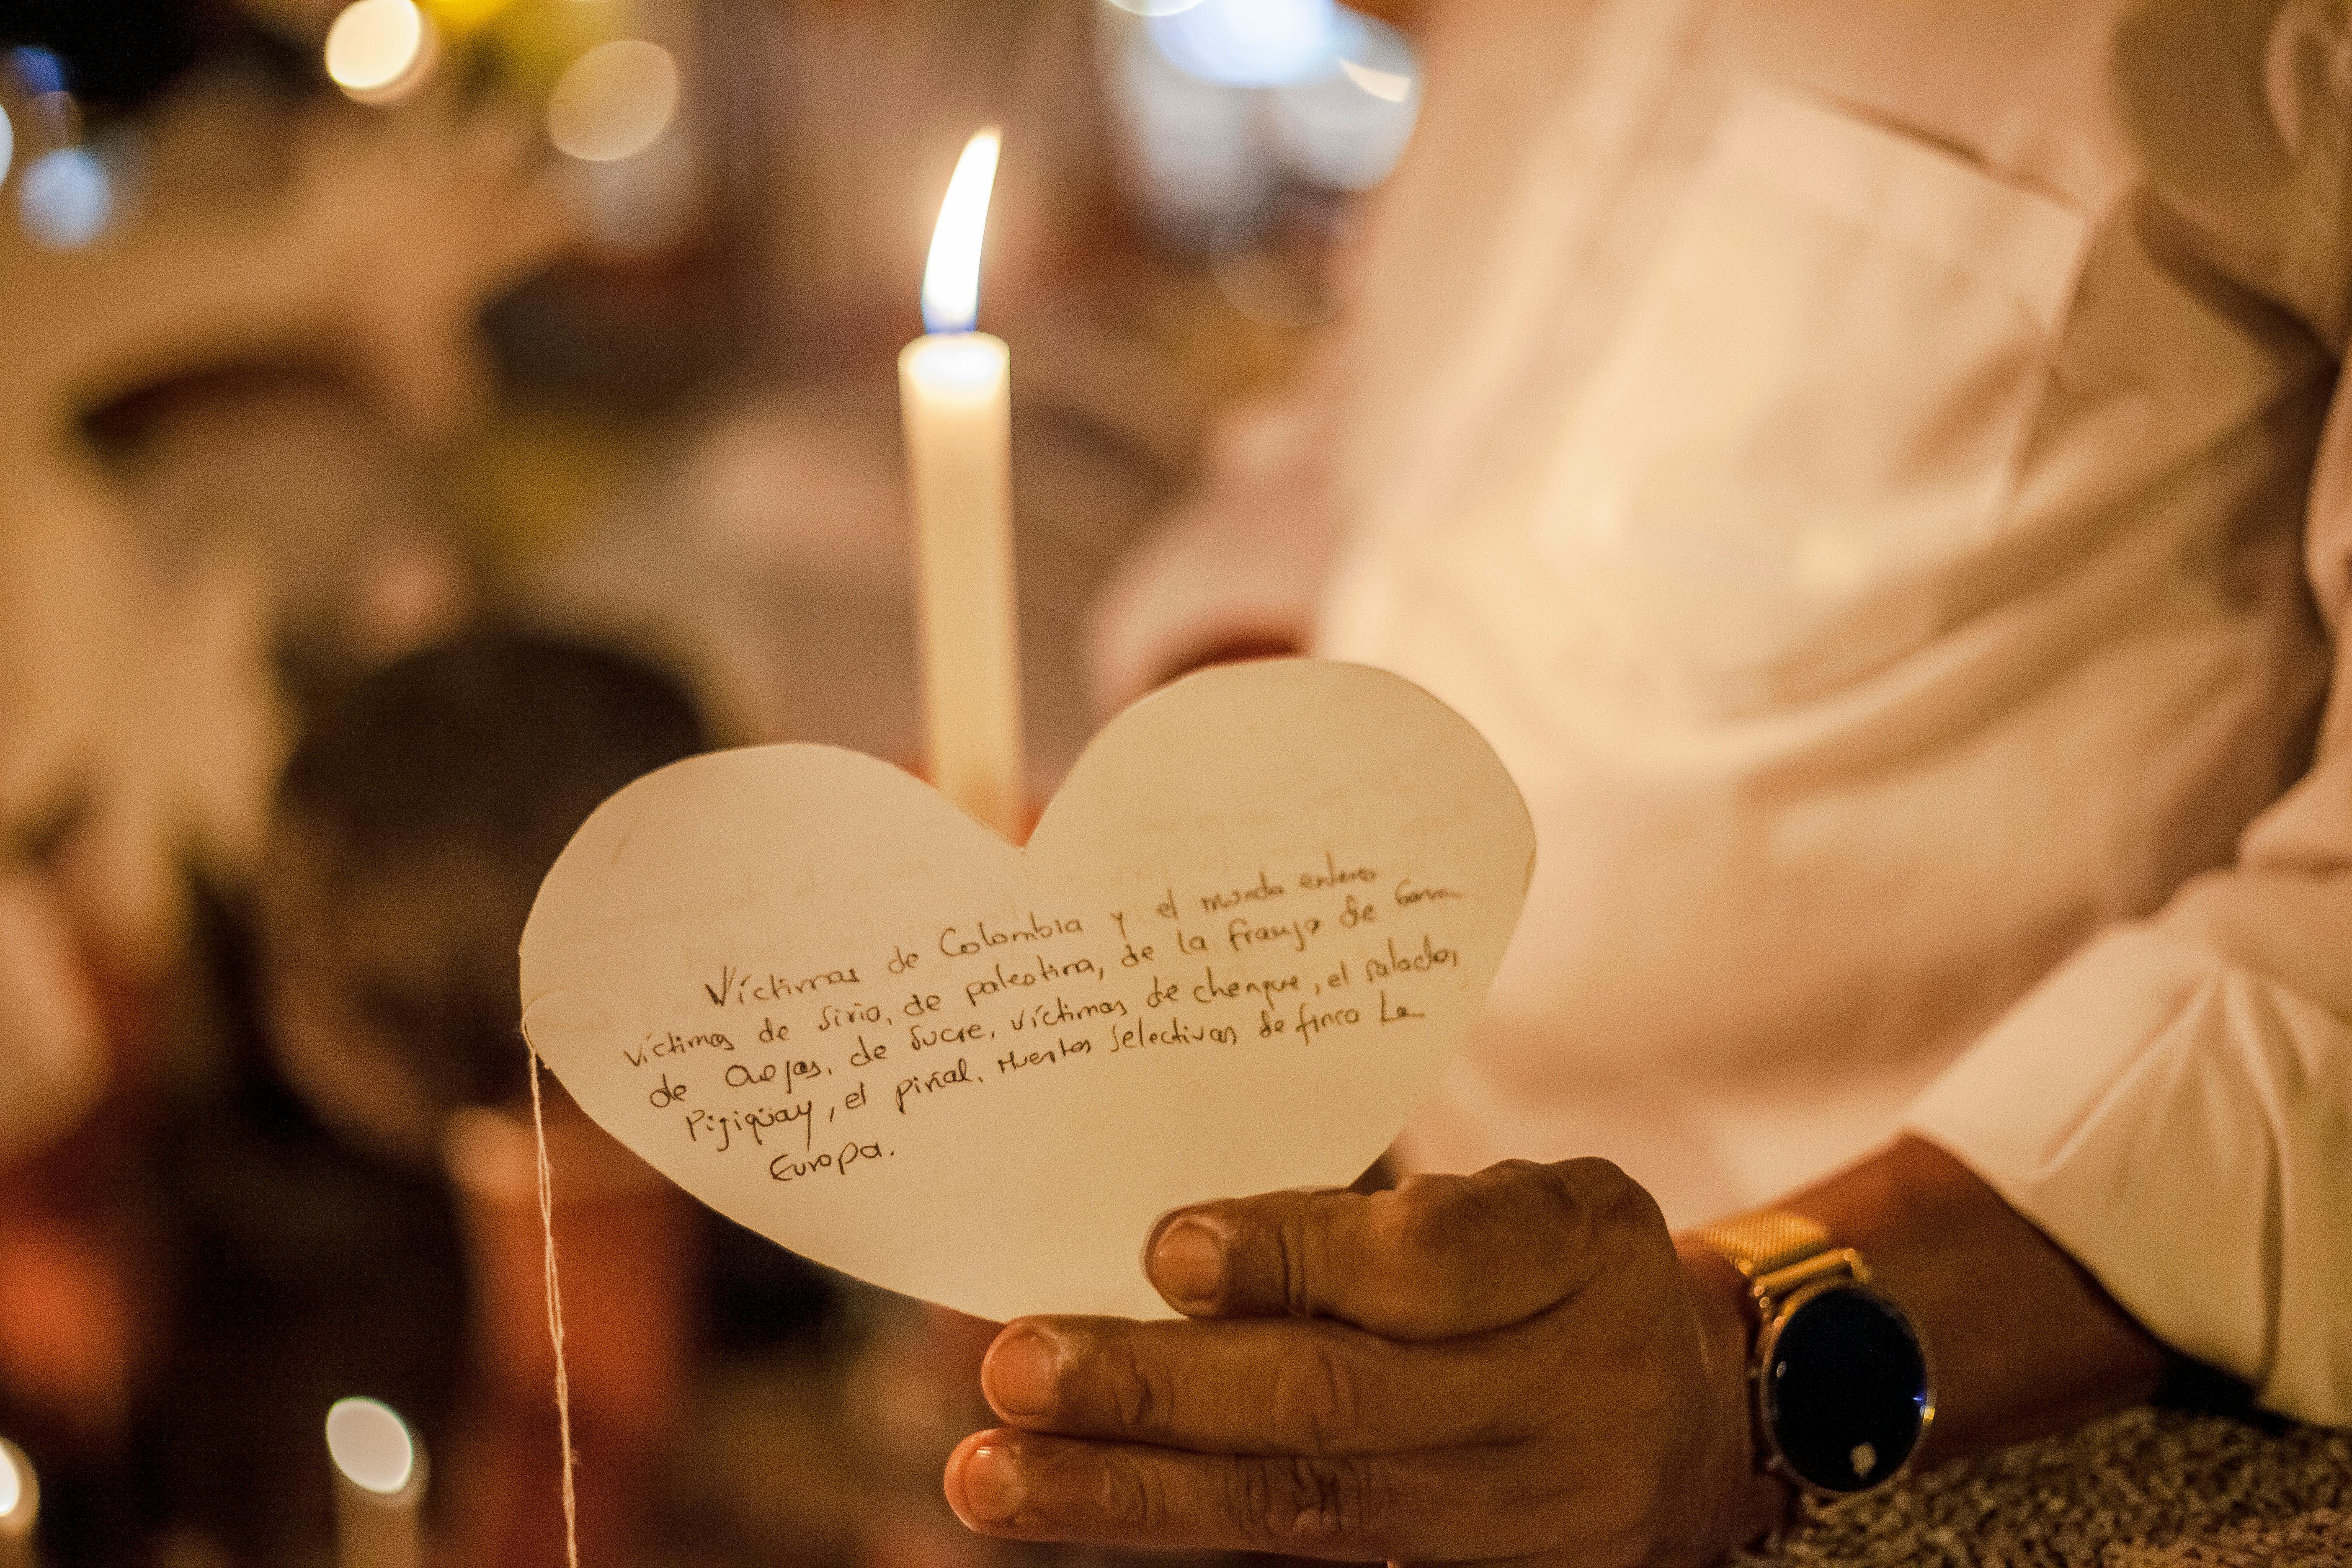 Víctimas de Colombia y el mundo entero
víctimas de Siria, de palestina, de la franja de
de Ovejas, de Sucre, víctimas de chengue, el salado,
Pijigüay, el piñal, Muertos Selectivas de finca La
Europa.